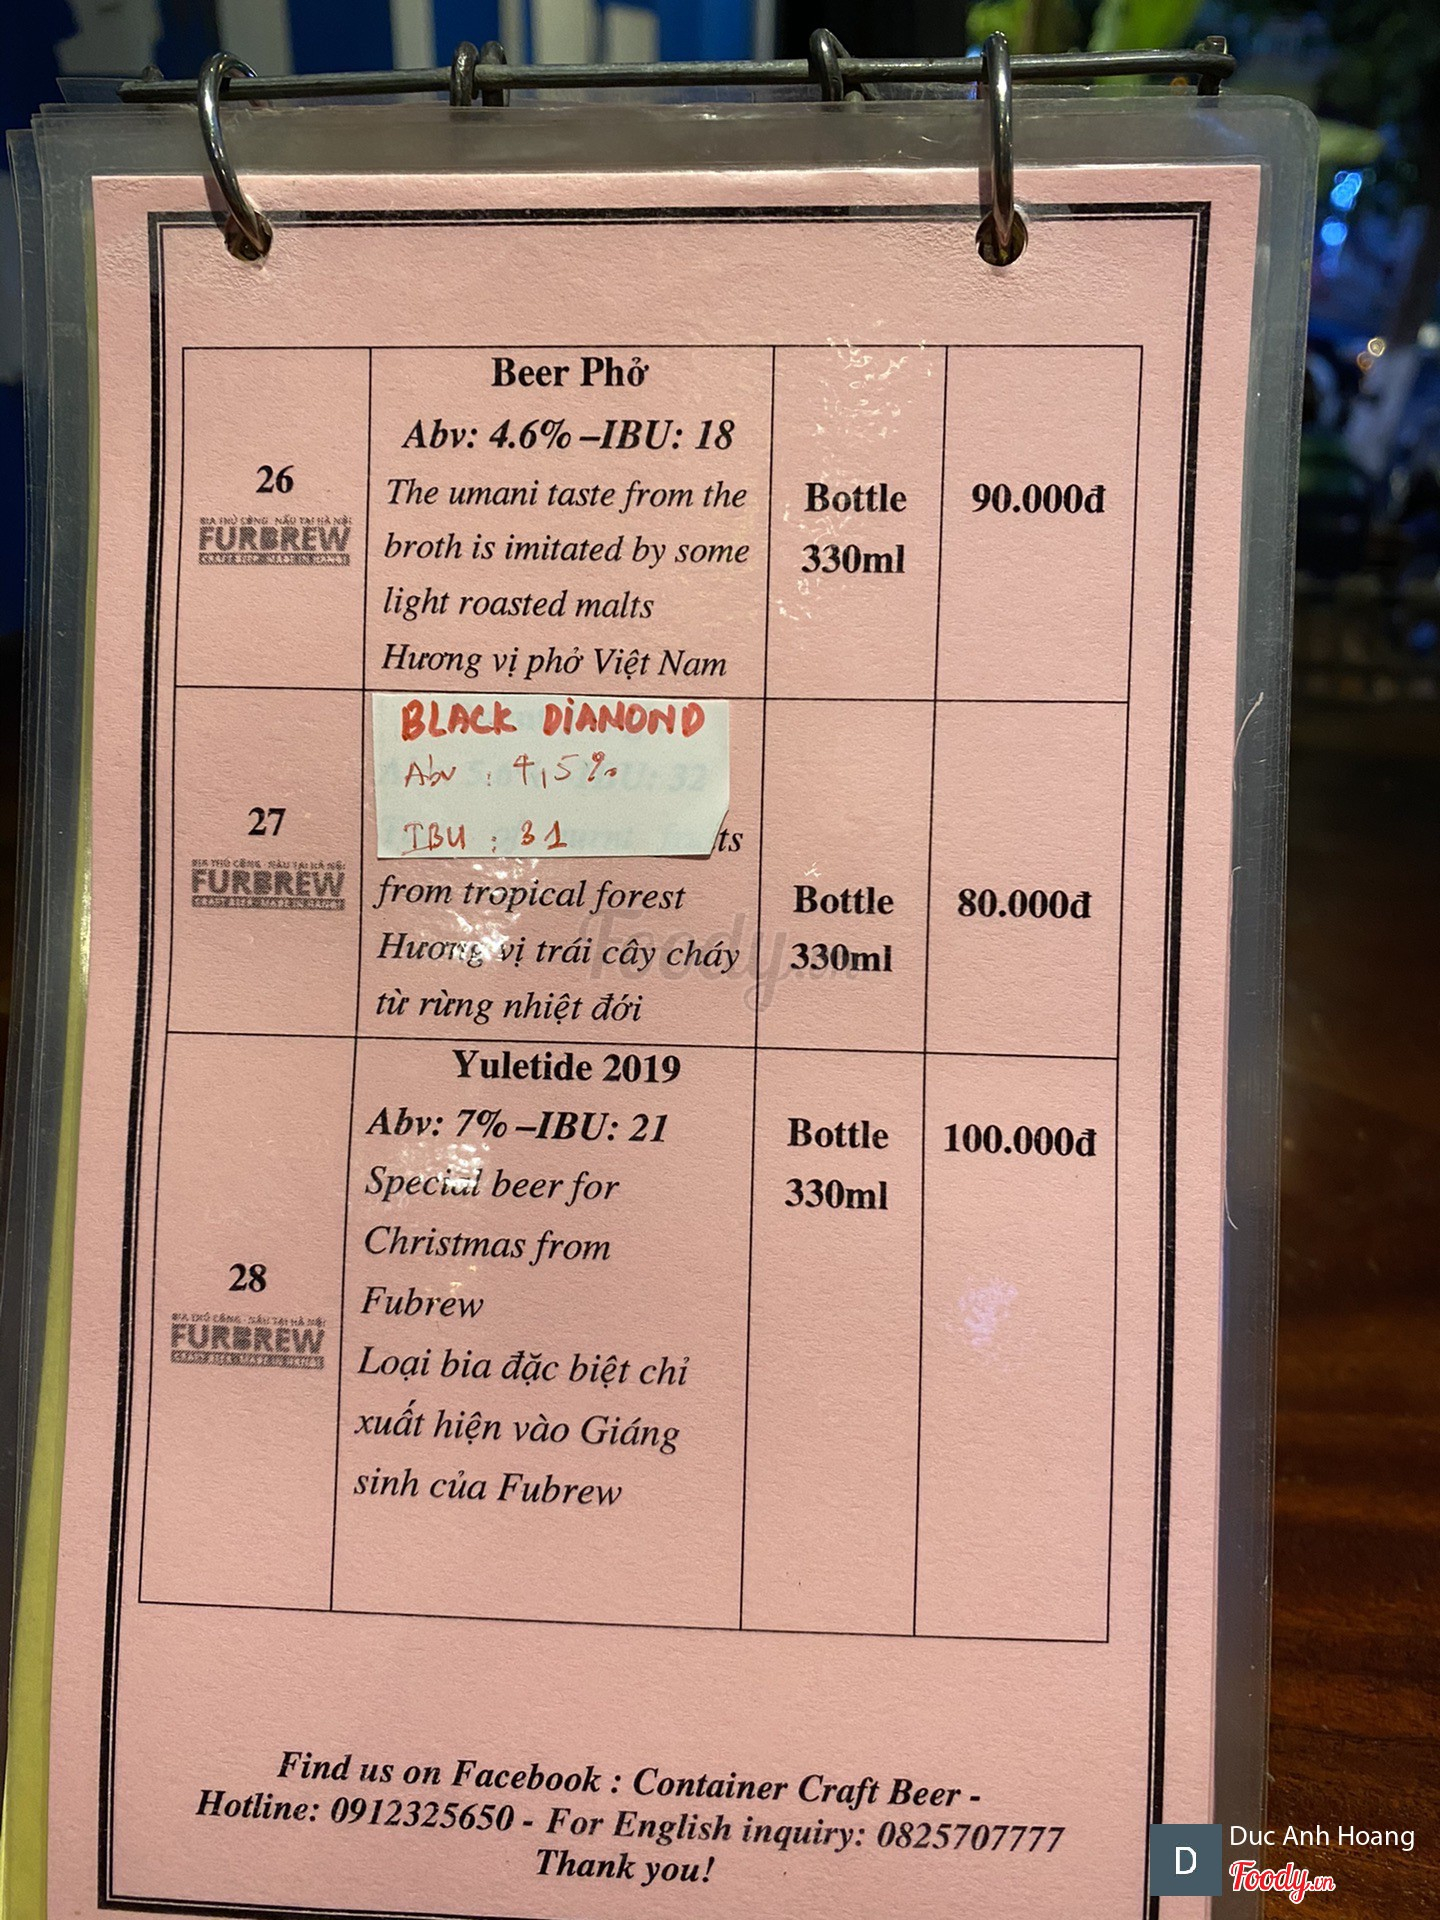 Beer Phở
Abv: 4.6% –IBU: 18
26
BIA THỦ CÔNG - NẤU TẠI HÀ NỘI
FURBREW
CRAFT BEER - MADE IN HANOI
The umani taste from the
broth is imitated by some
light roasted malts
Hương vị phở Việt Nam
Bottle
330ml
90.000đ
BLACK DIAMOND
Abv : 4,5%
IBU : 31
ts
27
BIA THỦ CÔNG - NẤU TẠI HÀ NỘI
FURBREW
CRAFT BEER - MADE IN HANOI
from tropical forest
Hương vị trái cây cháy
từ rừng nhiệt đới
Bottle
330ml
80.000đ
Yuletide 2019
Abv: 7% –IBU: 21
Special beer for
Christmas from
Fubrew
Loại bia đặc biệt chỉ
xuất hiện vào Giáng
sinh của Fubrew
28
BIA THỦ CÔNG - NẤU TẠI HÀ NỘI
FURBREW
CRAFT BEER - MADE IN HANOI
Bottle
330ml
100.000đ
Foody.vn
Find us on Facebook : Container Craft Beer -
Hotline: 0912325650 - For English inquiry: 0825707777
Thank you!
D
Duc Anh Hoang
Foody.vn